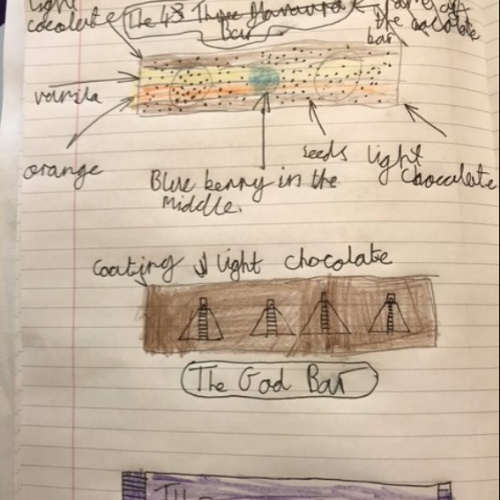 light
cocolate
The 48 Three flavoured
Bar
name off
the cocolate
bar
vanila
orange
Blue berry in the
Middle.
seeds
light
chocolate
coating light chocolate
The God Bar